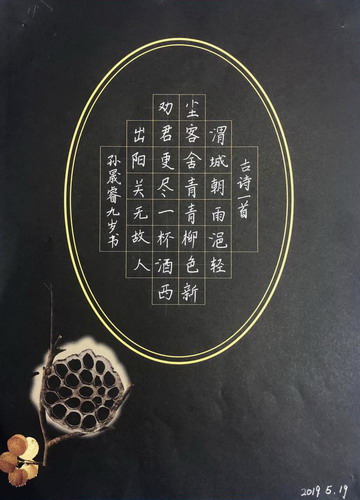 古诗一首
渭城朝雨浥轻
尘客舍青青柳色新
劝君更尽一杯酒西
出阳关无故人
孙晟睿九岁书
2019.5.19